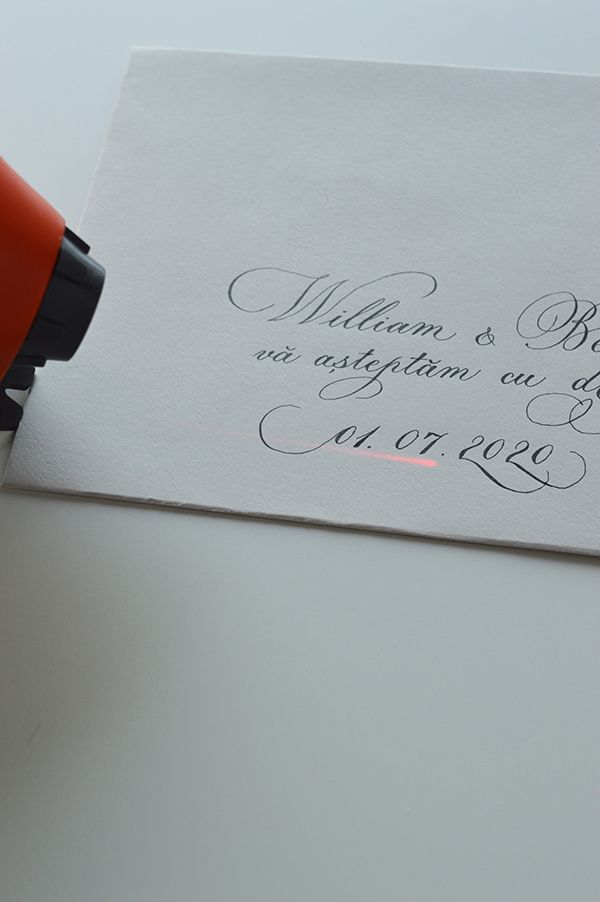 William &
vă așteptăm cu
01. 07. 2020